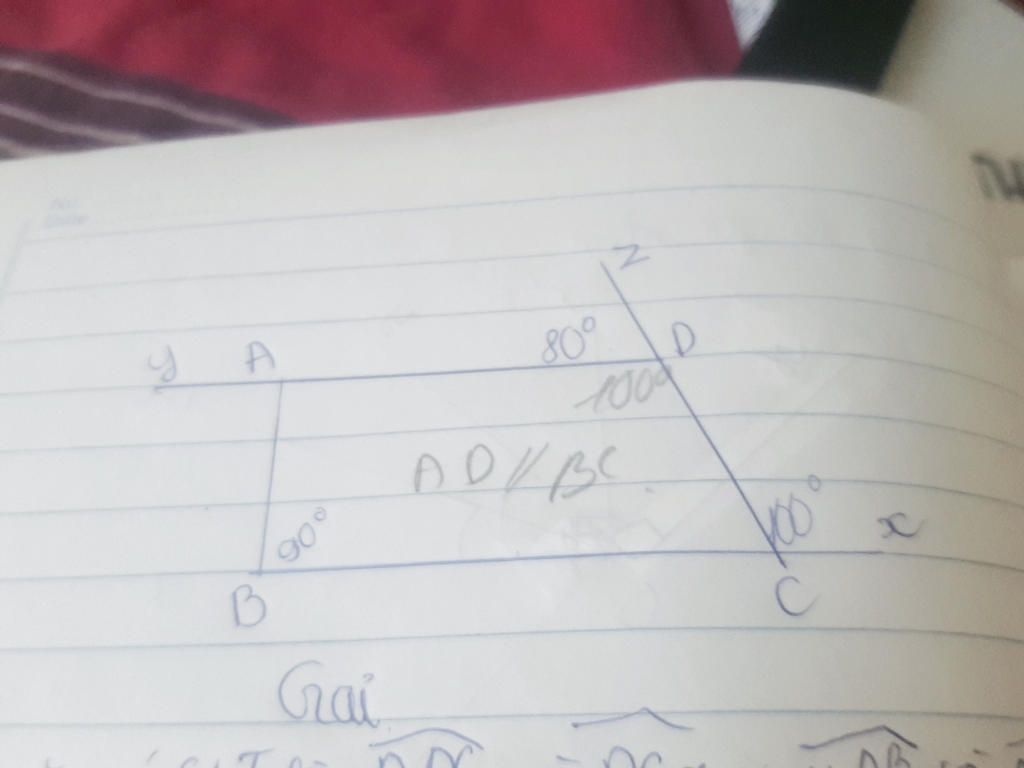 z
y A 80° D
100°
AD//BC
90° 100° x
B C
Giai